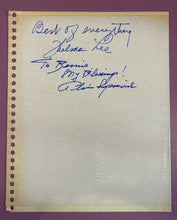 Best of everything
Thelma Lee
To Bonnie
My Blessings!